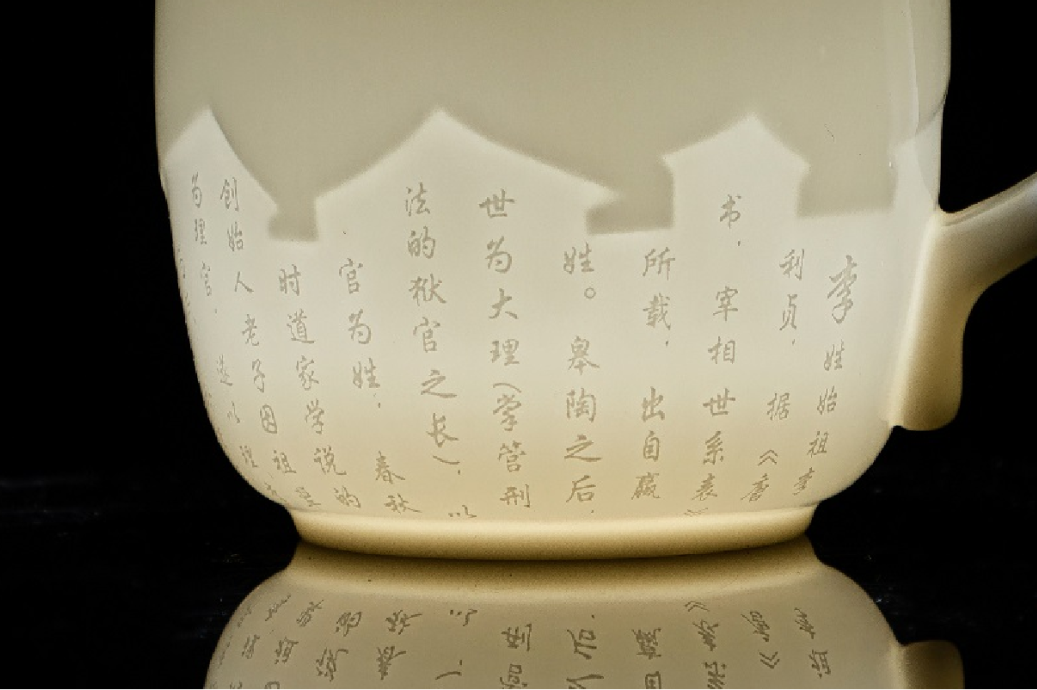 李姓始祖李
利贞，据《唐
书，宰相世系表》
所载，出自嬴
姓。皋陶之后，
世为大理（掌管刑
法的狱官之长），以
官为姓，春秋
时道家学说的
创始人老子因祖
为理官，遂以理